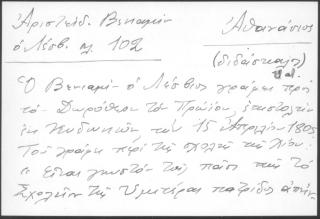 Ἀριστείδ. Βενιαμὶν
ὁ Λέσβ. σλ. 102
Ἀθανάσιος
(διδάσκαλος)
Ὁ Βενιαμὶν ὁ Λέσβιος γράφει πρὸς
τὸν Δωρόθεον τὸν Πρώιον, ἐπιστολὴν
ἐκ Κυδωνιῶν τὴν 15 Ἀπριλίου 1805
Τοῦ γράφει περὶ τῆς σχολῆς τῆς Χίου:
« Εἶναι γνωστὸν τοῖς πᾶσι πῶς τὸ
Σχολεῖον τῆς Ὑμετέρας πατρίδος